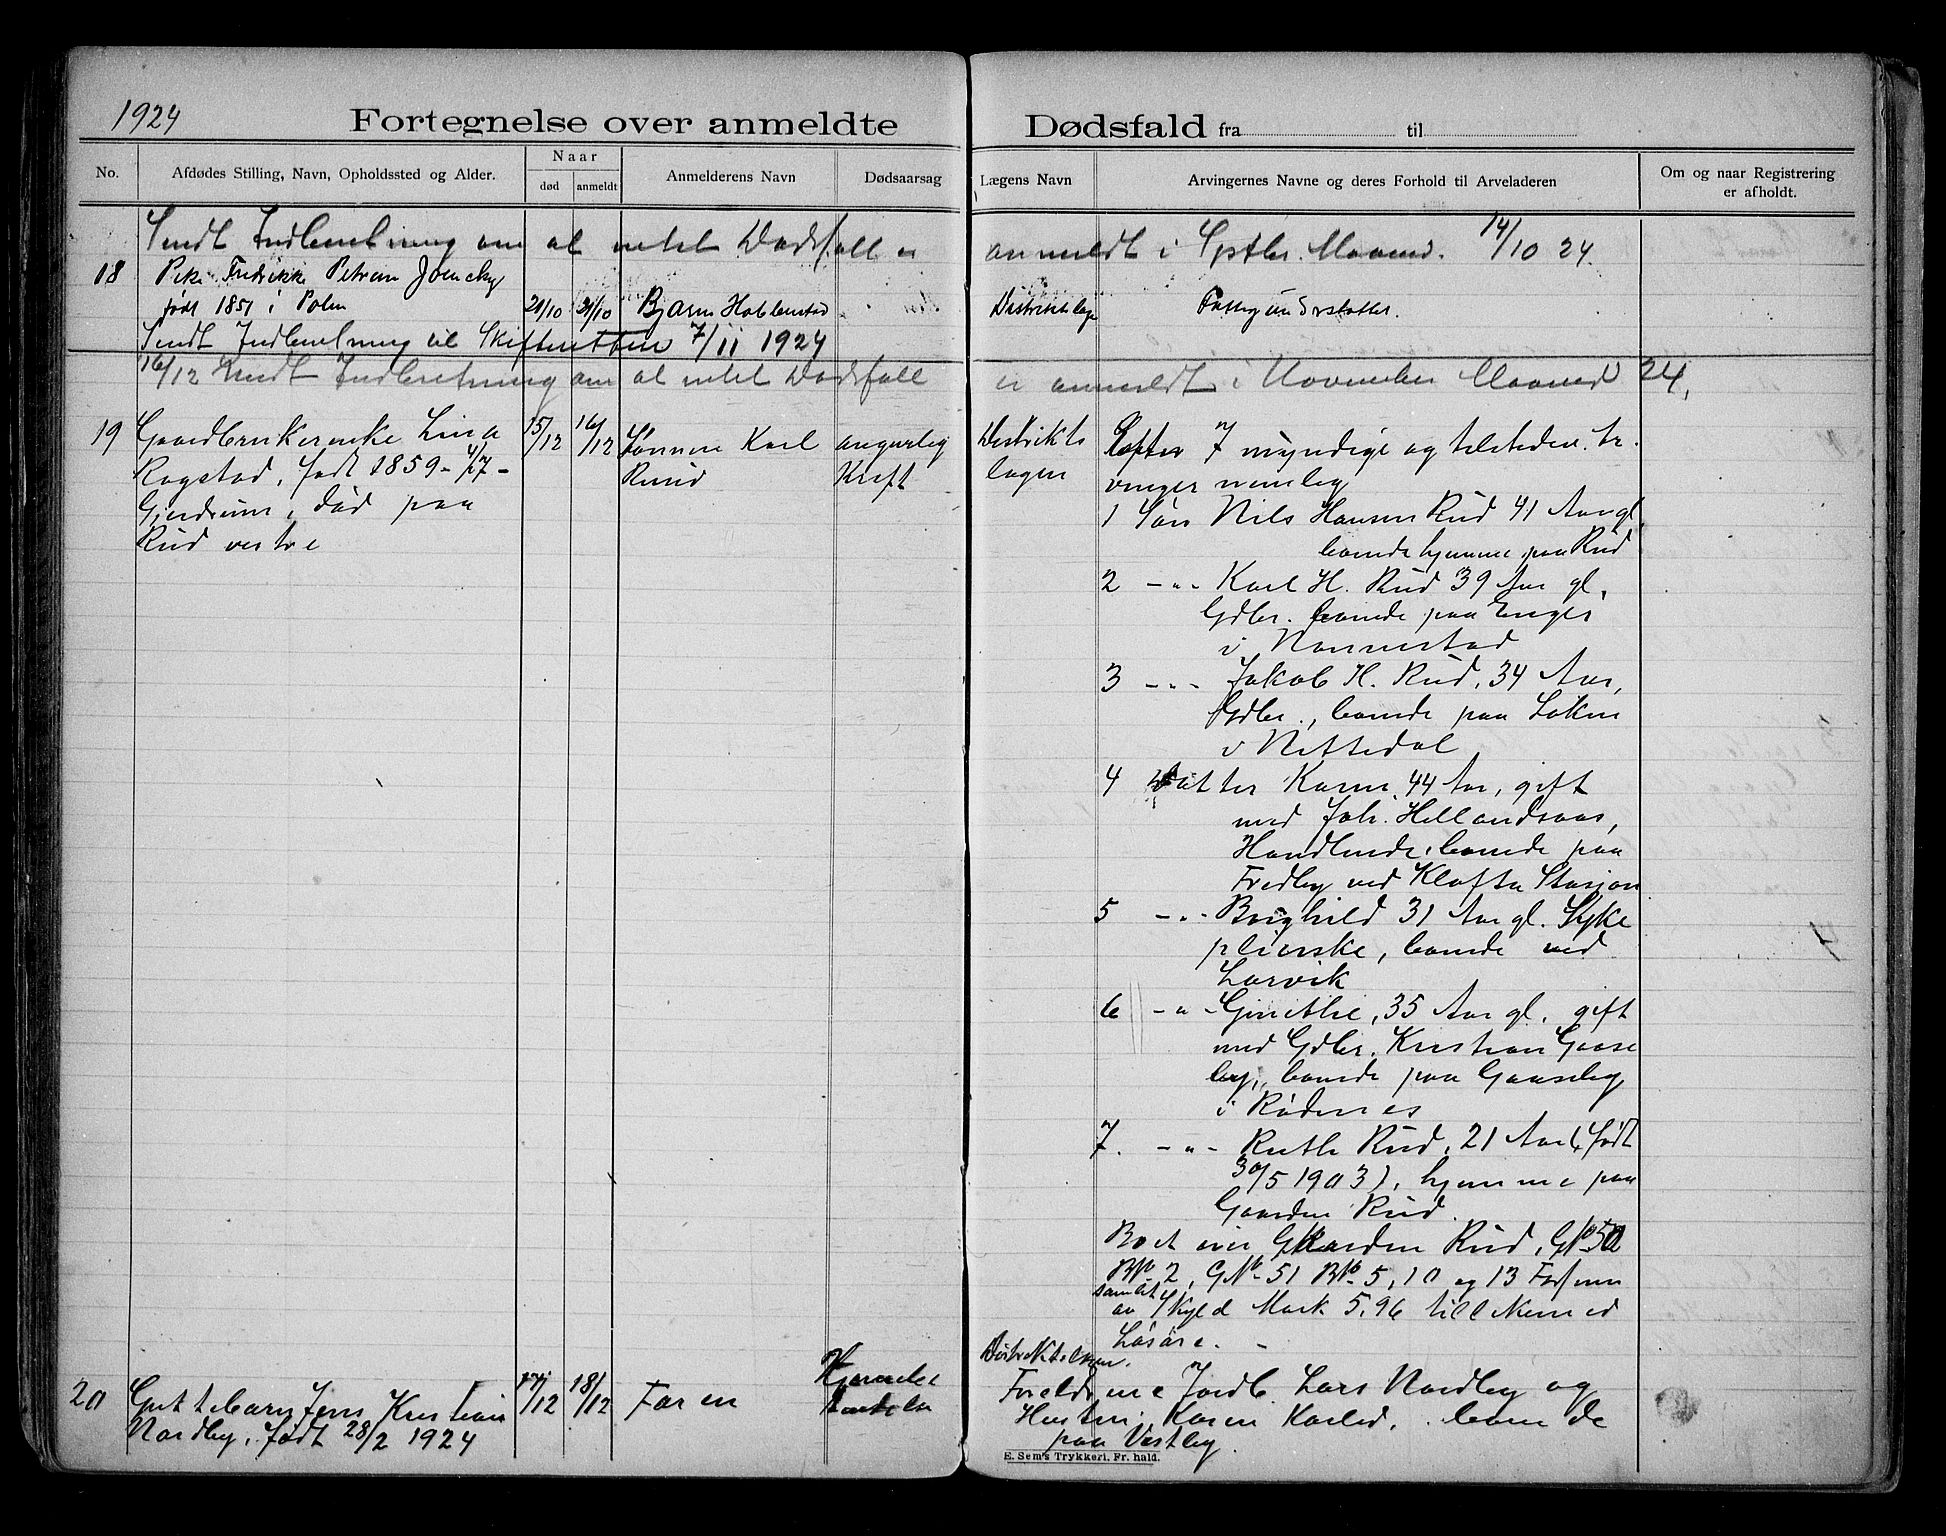 1924
Fortegnelse over anmeldte Dødsfald fra til
No.
Afdødes Stilling, Navn, Opholdssted og Alder.
Naar
død
anmeldt
Anmelderens Navn
Dødsaarsag
Lægens Navn
Arvingernes Navne og deres Forhold til Arveladeren
Om og naar Registrering
er afholdt.
Sendt Indberetning om at intet Dødsfall er anmeldt i Septbr. Maaned. 14/10 24.
18 Fredrikke Petrea
født 1851 i 21/10 21/10 Bjarne
Sendt Indberetning til Skifteretten 7/11 1924
16/12 Sendt Indberetning om at intet Dødsfall er anmeldt i November Maaned 24.
19 Gaardbrukerenke Lina 15/12 16/12 Sønnen Karl angivelig Distrikts Efter 7 myndige og tilstedev. ar-
Ragstad, født 1859-4/7- Ruud Kreft lægen vinger nemlig
Gjerdrum, død paa
Rud vestre
1 Søn Nils Hansen Rud 41 Aar gl.
boende hjemme paa Rud
2 -"- Karl H. Rud 39 Aar gl.
Gdbr. boende paa Enger
i Nannestad
3 -"- Jakob H. Rud, 34 Aar,
Gdbr., boende paa Løken
i Nittedal
4 Datter Karen, 44 Aar, gift
med Joh. Hellandsaas,
Handlende, boende paa
Fredby ved Kløfta Stasjon
5 -"- Borghild 31 Aar gl. Syke
pleierske, boende ved
Larvik
6 -"- Ginithe, 35 Aar gl. gift
med Gdbr. Kristian Gaase
by, boende paa Gaaseby
i Rødenes
7. -"- Ruth Rud, 21 Aar (født
30/5 1903), hjemme paa
Gaarden Rud.
Boet eier Gaarden Rud, GNo 50
BNo 2, GNo 51 BNo 5, 10 og 13
samlet
av Skyld Mark 5,96 tillikemed
Løsøre. -
Distriktslægen.
20 Guttebarn Jens Kristian 17/12 18/12 Faren Foreldrene Jordb. Lars Nordby og
Nordby, født 28/2 1924 Hustru Karen Karlsd. boende
paa Vestby.
E. Sem's Trykkeri, Fr. hald.